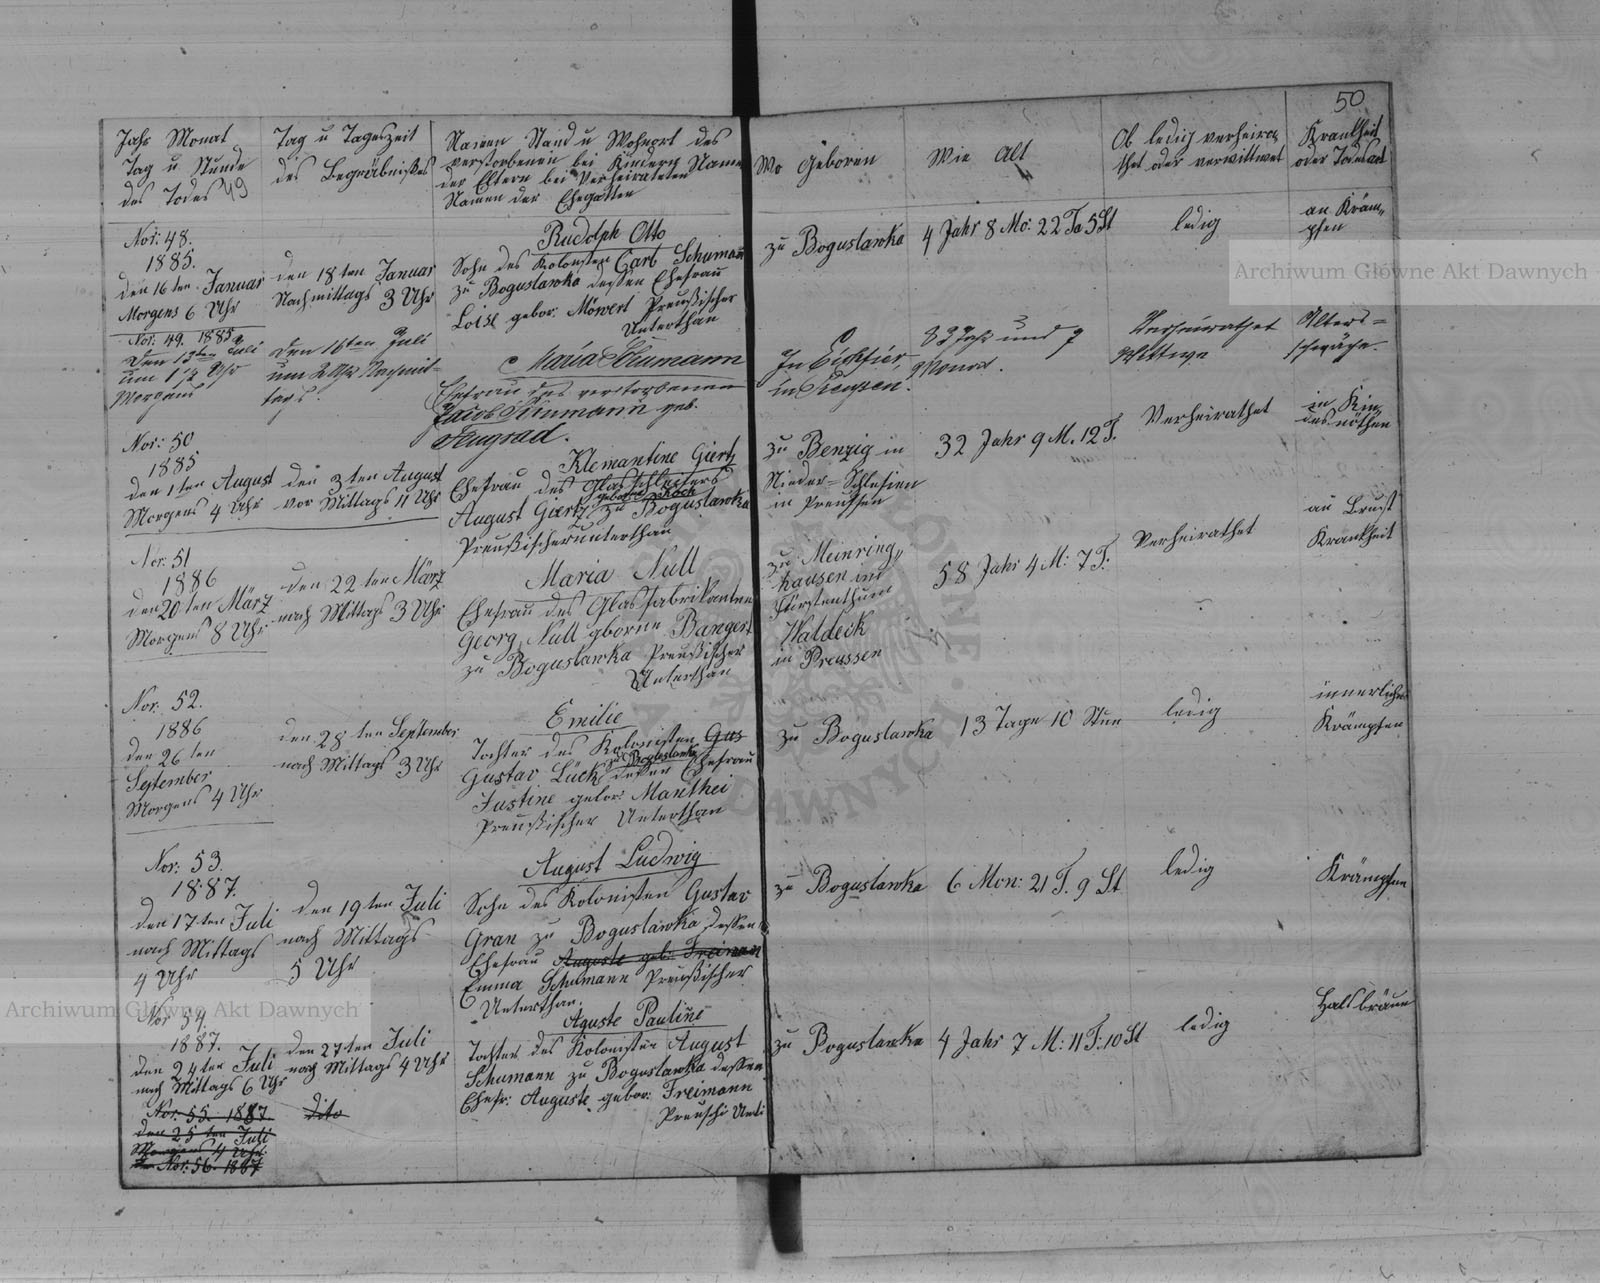 50
Jahr Monat
Tag u Stunde
des Todes 49
Tag u Tageszeit
des Begräbnißes
Namen Stand u Wohnort des
verstorbenen bei Kindern Namen
der Eltern bei Verheirateten
Namen der Ehegatten
Wo Geboren
Wie Alt
Ob ledig verheira
thet oder verwittwet
Krankheit
oder Todesart
Nor: 48.
1885.
den 16 ten Januar
Morgens 6 Uhr
den 18 ten Januar
Nachmittags 3 Uhr
Rudolph Otto
Sohn des Kolonisten Carl Schumann
zu Boguslawka dessen Ehefrau
Loise gebor: Möwert Preußischer
Unterthan
zu Boguslawka
4 Jahr 8 Mo: 22 Ta 5 St
ledig
an Kräm„
pfen
Nor: 49. 1885
Den 13ten Juli
um 1½ Uhr
Morgens
Den 16ten Juli
um 2 Uhr Nachmit=
tags.
Maria Schumann
Ehefrau des verstorbenen
Jacob Schumann geb.
In
in Preußen.
Jahr und 7
Monat.
Verheirathet
Wittwe
Alters=
schwäche.
Nor: 50
1885
den 1 ten August
Morgens 4 Uhr
den 3 ten August
vor Mittags 11 Uhr
Klemantine Giertz
Ehefrau des Glasschleifers
geborne Koch
August Giertz zu Boguslawka
Preußischerunterthan
zu Benzig in
Nieder=Schlesien
in Preussen
32 Jahr 9 M. 12 T.
Verheirathet
in Kin
desnöthen
Nor: 51
1886
den 20 ten März
Morgens 8 Uhr
den 22 ten März
nach Mittags 3 Uhr
Maria Null
Ehefrau des Glasfabrikanten
Georg Null gborne Bangert
zu Boguslawka Preußischer
Unterthan
zu Meinring„
hausen im
Fürstenthum
Waldeck
in Preussen
58 Jahr 4 M: 7 T.
Verheirathet
an Brust
Krankheit
Nor: 52.
1886
den 26 ten
September
Morgens 4 Uhr
den 28 ten September
nach Mittags 3 Uhr
Emilie
Tochter des Kolonisten Gus
zu Boguslawka
Gustav Lück dessen Ehefrau
Justine gebor: Manthei
Preußischer Unterthan
zu Boguslawka
13 Tage 10 Stun
ledig
innerliche
Krämpfen
Nor: 53.
1887.
den 17 ten Juli
nach Mittags
4 Uhr
den 19 ten Juli
nach Mittags
5 Uhr
August Ludwig
Sohn des Kolonisten Gustav
Gran zu Boguslawka dessen
Ehefrau Auguste geb: Freiman
Emma Schumann Preußischer
Unterthan.
zu Boguslawka
6 Mon: 21 T. 9 St
ledig
Krämpfen
Nor 54.
1887.
den 24 ten Juli
nach Mittags 6 Uhr
den 27 ten Juli
nach Mittags 4 Uhr
Aguste Pauline
Tochter des Kolonisten August
Schumann zu Boguslawka dessen
Ehefr: Auguste gebor: Freimann
Preuschi Unti
zu Boguslawka
4 Jahr 7 M: 11 T: 10 St
ledig
Halsbräune
Nor: 55 1887
den 25 ten Juli
Morgens 4 Uhr
Nor: 56. 1887
dito
Archiwum Główne Akt Dawnych
Archiwum Główne Akt Dawnych